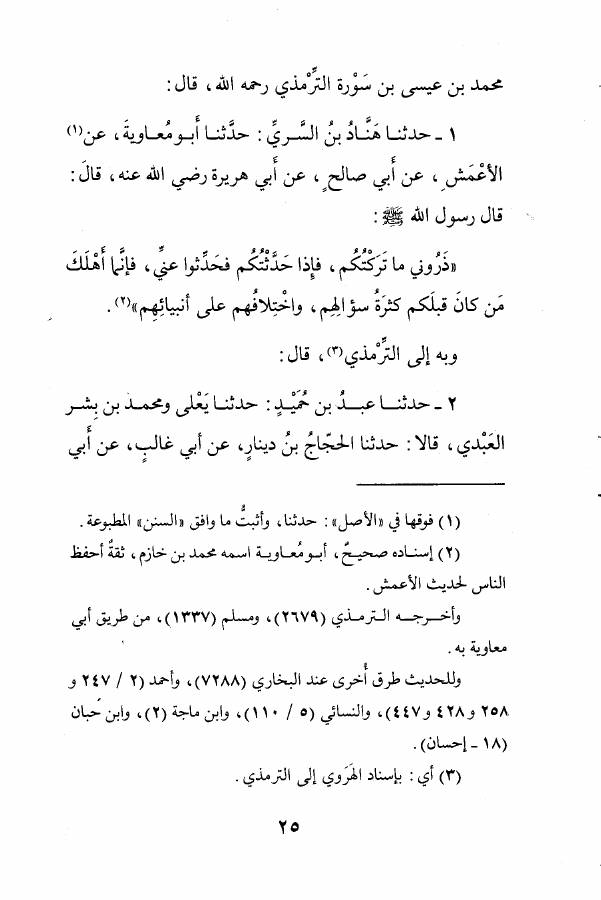 محمد بن عيسى بن سَوْرة التِّرْمذي رحمه الله ، قال :
١ ـ حدثنـا هَنَّادُ بنُ السَّـريِّ : حدَّثنـا أبـو مُعـاويةَ ، عن(١)
الأعْمَشِ ، عن أبي صالحٍ ، عن أبي هريرة رضي الله عنه ، قالَ :
قال رسول الله ﷺ :
«ذَرُوني ما تَرَكْتُكُم ، فإذا حَدَّثْتُكُم فحَدِّثوا عنيِّ ، فإنَّما أَهْلَكَ
مَن كانَ قبلَكم كثرَةُ سؤالِهِم ، واخْتِلافُهم على أنبيائِهِم»(٢) .
وبه إلى التِّرْمذي(٣) ، قال :
٢ ـ حدثنـــا عبــدُ بن حُمَيْـدٍ : حدثنـا يَعْلى ومحمـد بن بِشـر
العَبْدي ، قالا : حدثنا الحجّاجُ بنُ دينارٍ، عن أبي غالبٍ، عن أبي
(١) فوقها في «الأصل» : حدثنا، وأثبتُّ ما وافق «السنن» المطبوعة .
(٢) إسنـاده صحيـحٌ ، أبـو مُعَـاويـة اسمه محمد بن خازم ، ثقةٌ أحفظ
الناس لحديث الأعمش .
وأخـرجــه التـرمـذي (٢٦٧٩)، ومسلم (١٣٣٧)، من طريق أبي
معاوية به .
وللحديث طرق أُخرى عند البخاري (٧٢٨٨)، وأحمد (٢ / ٢٤٧ و
٢٥٨ و ٤٢٨ و ٤٤٧)، والنسائي (٥ / ١١٠)، وابن ماجة (٢)، وابن حَبان
(١٨ ـ إحسان) .
(٣) أي : بإسناد الهَرَوي إلى الترمذي .
٢٥